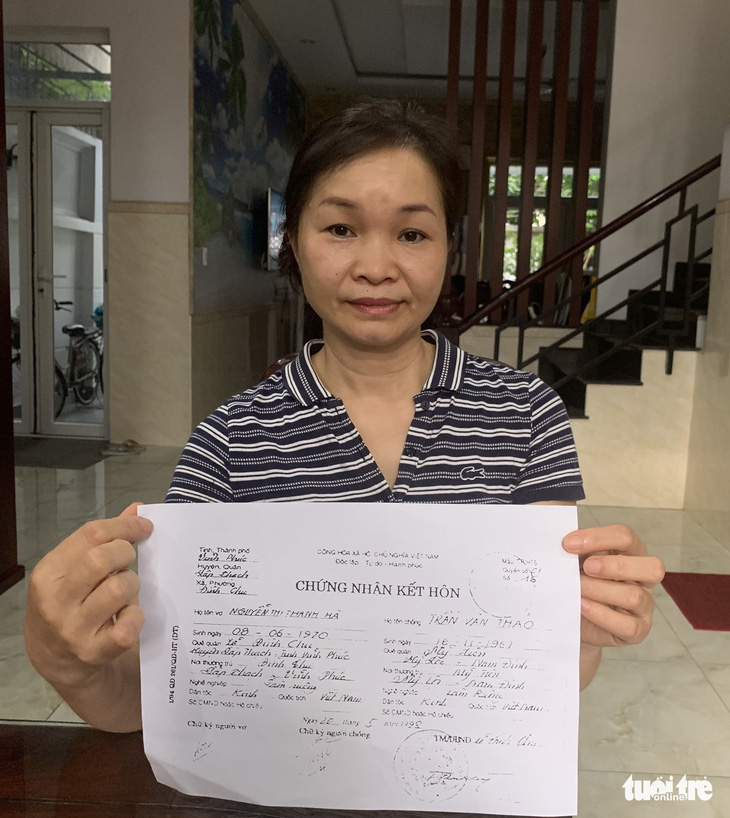 Tỉnh, Thành phố
Vĩnh Phúc
Huyện, Quận
Lập Thạch
Xã, Phường
Đình Chu
CỘNG HÒA XÃ HỘI CHỦ NGHĨA VIỆT NAM
Độc lập - Tự do - Hạnh phúc
Mẫu TP/HT3
Quyển số 01
Số 16
CHỨNG NHẬN KẾT HÔN
Họ tên vợ NGUYỄN THỊ THANH HÀ
Sinh ngày 08 - 06 - 1970
Quê quán Xã Đình Chu
Huyện Lập Thạch - Tỉnh Vĩnh Phúc
Nơi thường trú Đình Chu
Lập Thạch - Vĩnh Phúc
Nghề nghiệp Làm ruộng
Dân tộc Kinh Quốc tịch Việt Nam
Số CMND hoặc Hộ chiếu
Chữ ký người vợ
Họ tên chồng TRẦN VĂN THAO
Sinh ngày 16 - 11 - 1967
Quê quán Mỹ Tiến
Mỹ Lộc - Nam Định
Nơi thường trú Mỹ Tiến
Mỹ Lộc - Nam Định
Nghề nghiệp Làm Ruộng
Dân tộc Kinh Quốc tịch Việt Nam
Số CMND hoặc Hộ chiếu
Ngày 20 tháng 5 năm
Chữ ký người chồng
TM/UBND xã Đình Chu
tuổi trẻ
online